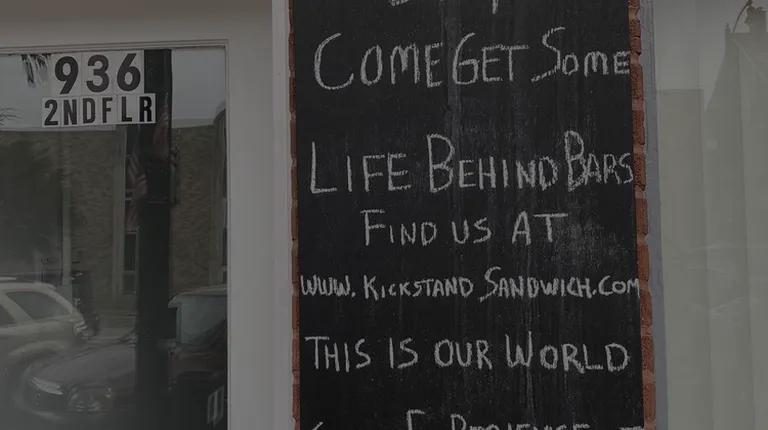 936
2NDFLR
COME GET SOME
LIFE BEHIND BARS
FIND US AT
WWW.KICKSTANDSANDWICH.COM
THIS IS OUR WORLD